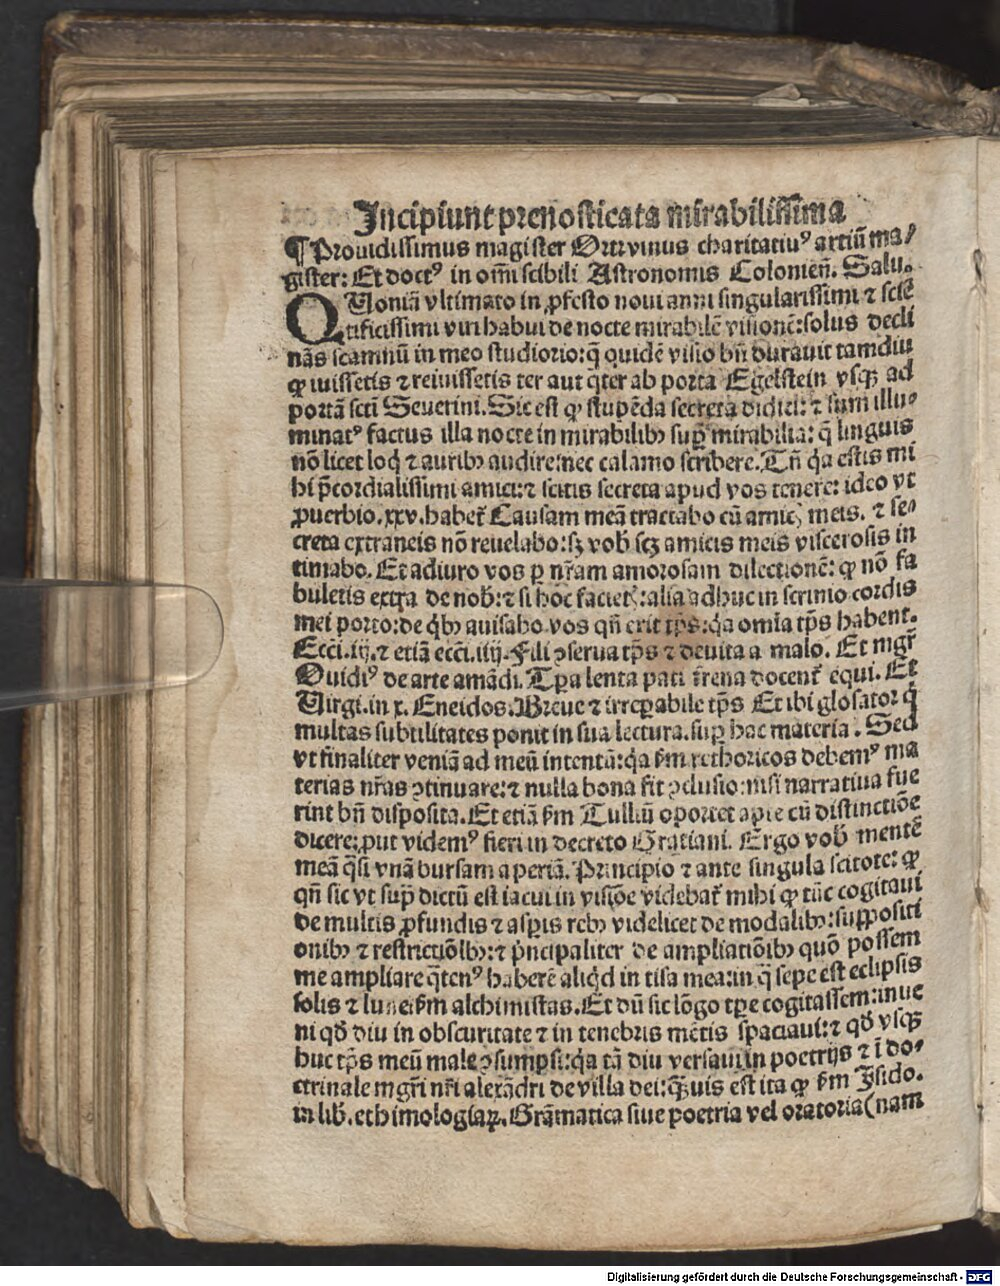 Incipiunt prenosticata mirabilissima
¶ Prouidissimus magister Ortvinus charitatiuꝰ artiũ ma/
gister: Et doctꝰ in om̃i scibili Astronomis Colonien̄. Salu.
QUoniã vltimato in ꝓfesto noui anni singularissimi ⁊ sciẽ
tificissimi viri habui de nocte mirabilẽ visionẽ: solus decli
nãs scamnũ in meo studiorio: q̃ quidẽ visio bñ durauit tamdiu
ꝙ iuissetis ⁊ reiuissetis ter aut q̃ter ab porta Egelstein vsqꝫ ad
portã scti Seuerini. Sic est ꝙ stupẽda secreta didici: ⁊ sum illu⸗
minatꝰ factus illa nocte in mirabilibꝫ sup̃ mirabilia: q̃ linguis
nõ licet loq̇ ⁊ auribꝫ audire: nec calamo scribere. Tñ q̇a estis mi
hi p̃cordialissimi amici: ⁊ scitis secreta apud vos tenere: ideo vt
ꝓuerbio. xxv. habet᷑ Causam meã tractabo cũ amicꝭ meis. ⁊ se⸗
creta extraneis nõ reuelabo: sꝫ vob̃ scꝫ amicis meis viscerosis in
timabo. Et adiuro vos ꝑ nr̃am amorosam dilectionẽ: ꝙ nõ fa
buletis extra de nob̃: ⁊ si hoc facietꝭ: alia adhuc in scrinio cordis
mei porto: de q̇bꝫ auisabo vos qñ erit tp̃s: q̇a om̃ia tp̃s habent.
Ecci. iij. ⁊ etiã ecci. iiij. Fili ꝯserua tp̃s ⁊ deuita a malo. Et mgr̃
Ouidiꝰ de arte amãdi. Tp̃a lenta pati frena docent᷑ equi. Et
Virgi. in x. Eneidos. Breue ⁊ irreꝑabile tp̃s Et ibi glosator q̇
multas subtilitates ponit in sua lectura. sup̃ hac materia. Sed
vt finaliter veniã ad meũ intentũ: q̇a s̃m rethoricos debemꝰ ma
terias nr̃as ꝯtinuare: ⁊ nulla bona fit ꝯclusio: nisi narratiua fue
rint bñ disposita. Et etiã s̃m Tulliũ oportet apte cũ distinctiõe
dicere: ꝓut videmꝰ fieri in decreto Gratiani. Ergo vob̃ mentẽ
meã q̃si vnã bursam aperiã. Principio ⁊ ante singula scitote: ꝙ
qñ sic vt sup̃ dictũ est iacui in visiõe videbat᷑ mihi ꝙ tũc cogitaui
de multis ꝓfundis ⁊ asꝑis rebꝫ videlicet de modalibꝫ: suppositi
onibꝫ ⁊ restrictiõibꝫ: ⁊ p̃ncipaliter de ampliatiõibꝫ quõ possem
me ampliare q̃tenꝰ haberẽ aliq̇d in tisa mea: in q̃ sepe est eclipsis
solis ⁊ lune: s̃m alchimistas. Et dũ sic lõgo tꝑe cogitassem: inue
ni qđ diu in obscuritate ⁊ in tenebris mẽtis spaciaui: ⁊ qđ vsqꝫ
huc tp̃s meũ male ꝯsumpsi: q̇a tã diu versaui in poetrijs ⁊ ĩ do⸗
ctrinale mgr̃i nr̃i alexãdri de villa dei: q̃uis est ita ꝙ s̃m Isido.
in lib̃. ethimologiaꝝ. Grãmatica siue poetria vel oratoria (nam
Digitalisierung gefördert durch die Deutsche Forschungsgemeinschaft - DFG